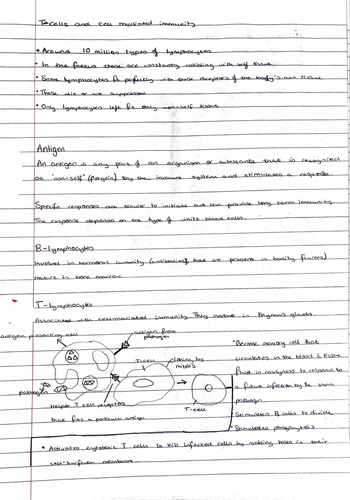 T-cells and cell mediated immunity
• Around 10 million types of lymphocytes.
• In the foetus these are constantly colliding with self tissue
• Some lymphocytes fit perfectly with those receptors of the body's own tissue
• These die or are suppressed
• Only lymphocytes left fit only non-self tissue
Antigen
An antigen is any part of an organism or substance that is recognised
as "non-self" (foreign) by the immune system and stimulates a response
Specific responses are slower to initiate but can provide long term immunity.
The response depends on the type of white blood cells.
B-lymphocytes
Involved in humoral immunity (antibodies that are present in bodily fluids)
mature in bone marrow
T-lymphocytes
Associated with cell-mediated immunity. They mature in thymus glands.
antigen presenting cell
antigen from
pathogen
T-cell
cloning by
mitosis
pathogen
Helper T cell receptors
that fits a particular antigen
T-cell
• Become memory cell that
circulates in the blood & tissue
fluid in readiness to respond to
a future infection by the same
pathogen
• Stimulates B cells to divide
• Stimulates phagocytosis
• Activates cytotoxic T cells to kill infected cells by making holes in their
cell-surface membrane